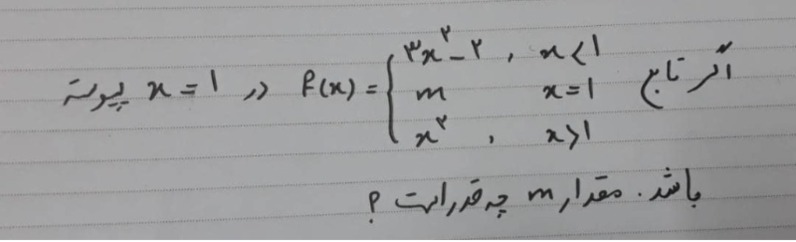 اگر تابع f(x) = { ۳x^۲ - ۲ , x < 1
m x = 1
x^۲ , x > 1 در x = 1 پیوسته
باشد. مقدار m چه قدر است ؟